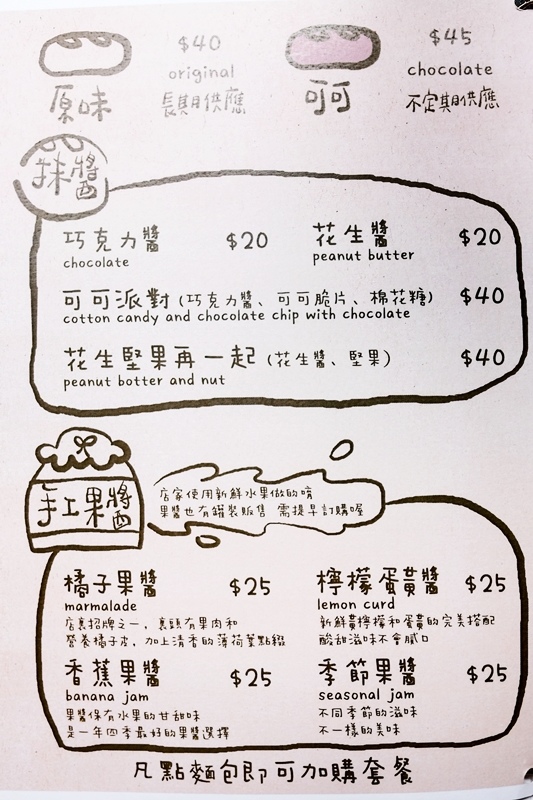 $40
original
原味
長期供應
$45
chocolate
可可
不定期供應
抹醬
巧克力醬 $20
chocolate
花生醬 $20
peanut butter
可可派對(巧克力醬、可可脆片、棉花糖) $40
cotton candy and chocolate chip with chocolate
花生堅果再一起(花生醬、堅果) $40
peanut botter and nut
手工果醬
店家使用新鮮水果做的唷
果醬也有罐裝販售 需提早訂購喔
橘子果醬 $25
marmalade
店裏招牌之一，裏頭有果肉和
營養橘子皮，加上清香的薄荷葉點綴
檸檬蛋黃醬 $25
lemon curd
新鮮黃檸檬和蛋黃的完美搭配
酸甜滋味不會膩口
香蕉果醬 $25
banana jam
果醬保有水果的甘甜味
是一年四季最好的果醬選擇
季節果醬 $25
seasonal jam
不同季節的滋味
不一樣的美味
凡點麵包即可加購套餐